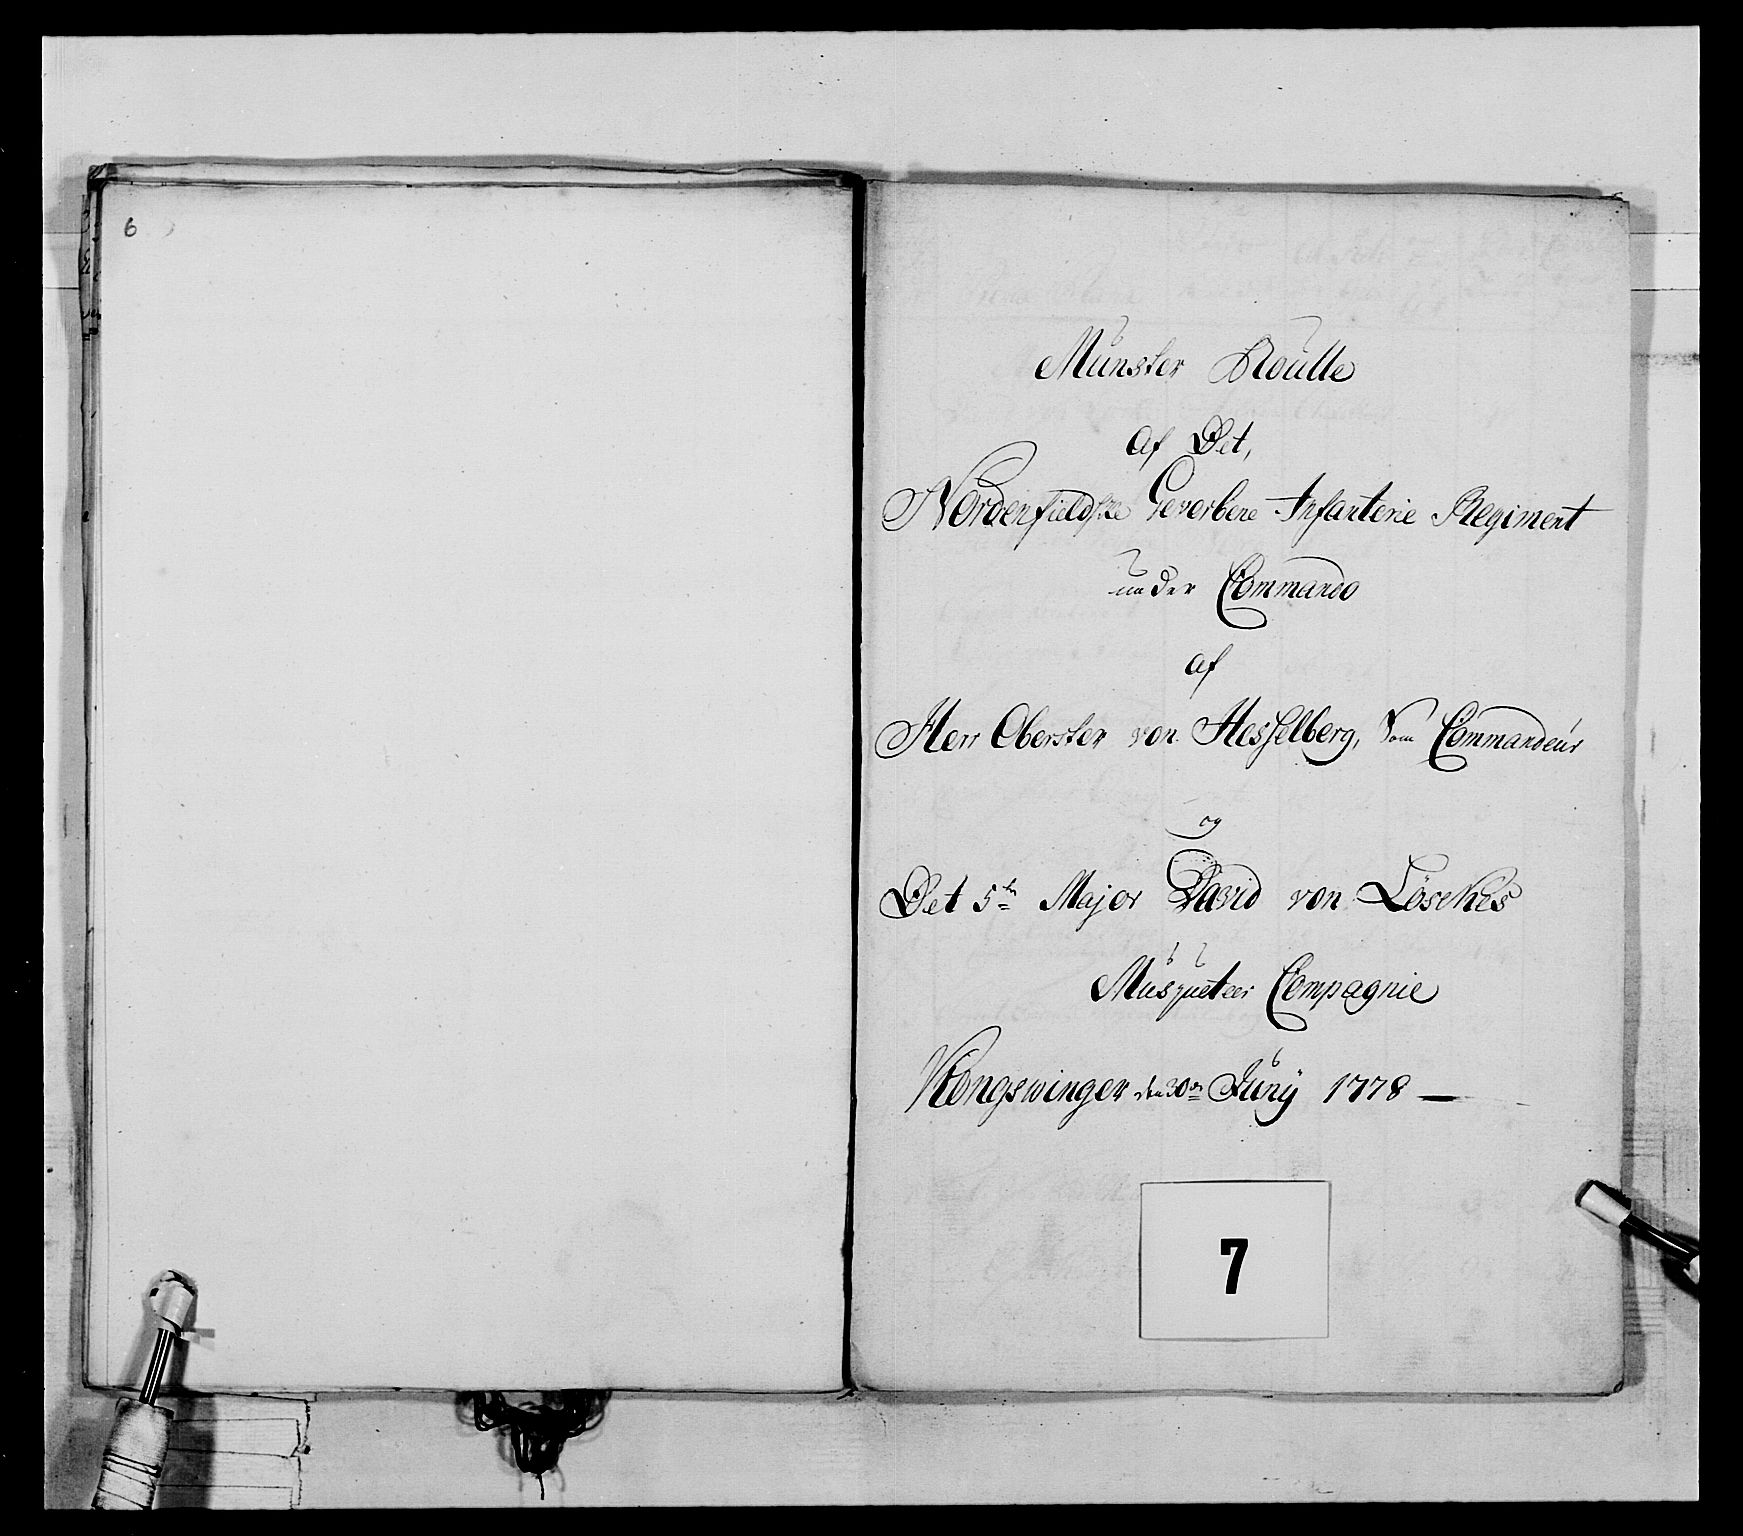 6
Munster Roulle
Af Det,
Nordenfieldske Geverbene Infanterie Regiment
under Commando
af
Herr Oberster von Hesselberg, som Commandeur
og
Det 5te Major David von Löschès
Musqueteer Compagnie
Kongswinger den 30te Juny 1778 —
7